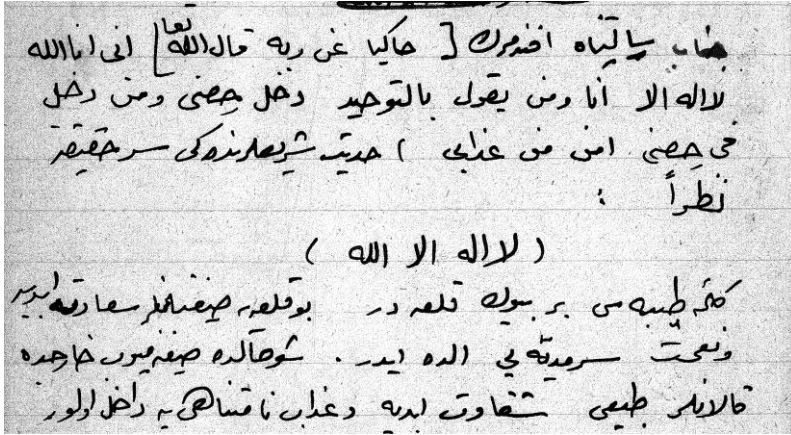 جناب رسالتپناه افندمزك [ حاكيا عن ربه قال الله تعا ] انى انا الله
لا اله الا انا ومن يقول بالتوحيد دخل حِصنى ومن دخل
فى حِصنى امن من عذابى ) حديث شريفلرنده كى سر حقيقته
نظراً :
( لا اله الا الله )
كلمۀ طيبه سى بر بيوك قلعه در بو قلعه يه صيغنانلر سعادت ابديه
ونعمت سرمديه يى الده ايدر . شو حالده صيغنميوب خارجده
قالانلر طبيعى شقاوت ابديه وعذاب نامتناهى يه داخل اولور